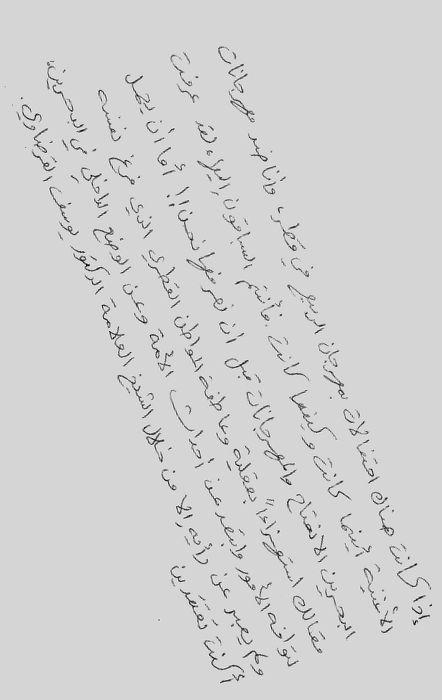 إذا كانت هناك احتفالات بمهرجان الربيع في قطر، وأنا ضد مهرجانات
الأغنية أينما كانت وكيفما كانت. فأنتم السباقون إليها، لقد عرفت
البحرين الافتتاح والمهرجانات قبل ان نعرفها نحن!! أما أن يحمل
مقالك استهزاءاً بعقلية وعاطفة المواطن القطري الذي فرغ نفسه
لتوافه الأمور وابتعد عن احداث الأمة وعن الوضع الداخلي في البحرين،
ولم يعبر عن رأيه إلا من خلال الشيخ العلامة الدكتور يوسف القرضاوي.
أكنت تعتقدين